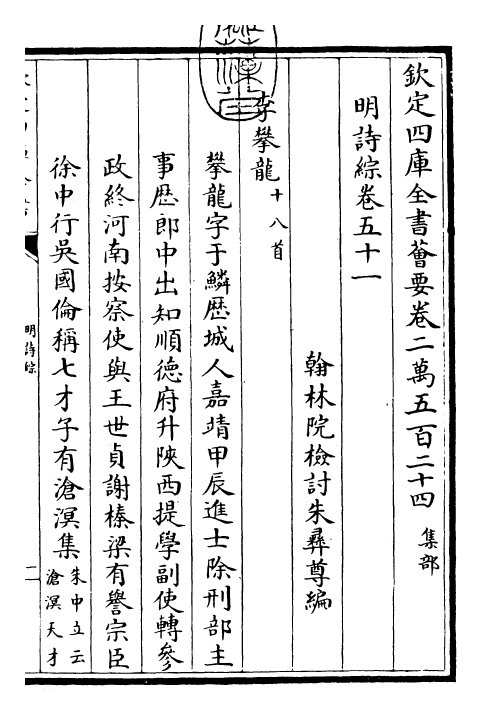 欽定四庫全書薈要卷二萬五百二十四 集部
明詩綜卷五十一
翰林院檢討朱彝尊編
李攀龍十八首
攀龍字于鱗歴城人嘉靖甲辰進士除刑部主
事歴郎中出知順德府升陜西提學副使轉參
政終河南按察使與王世貞謝榛梁有譽宗臣
徐中行吳國倫稱七才子有滄溟集朱中立云
滄溟天才
明詩綜